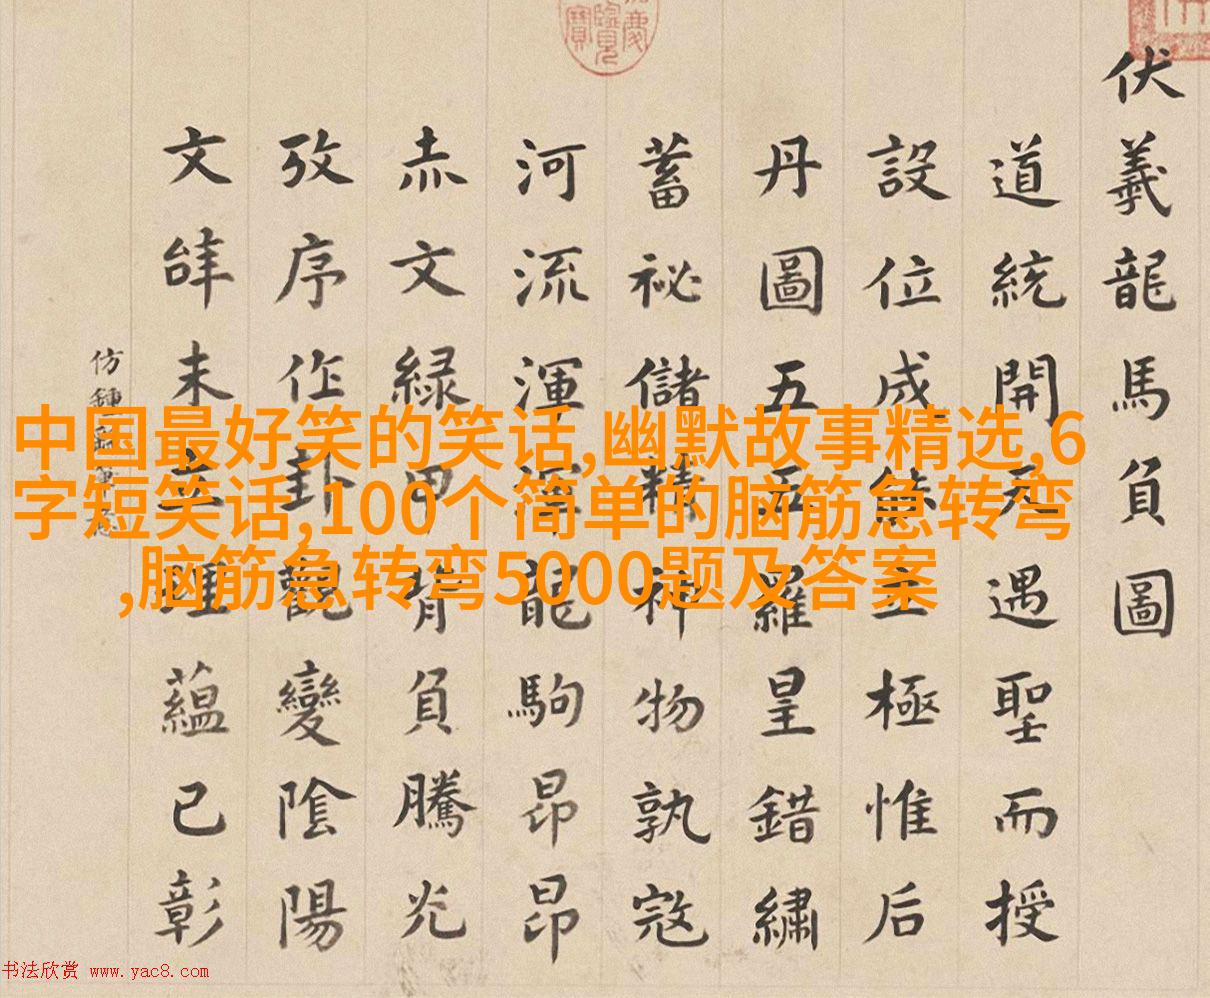 中国最好笑的笑话,幽默故事精选,6
字短笑话,100个简单的脑筋急转弯
,脑筋急转弯5000题及答案
伏羲龍馬負圖
道統開遇聖而授
設位成能主極惟后
丹圖五羅皇錯繡
蓄祕儲精神物孰寇
河流渾渾龍駒昂昂
赤文緑甲背負騰光
攷序作卦觀變陰陽
文辝未立理蘊已彰
仿鍾
书法欣赏 www.yac8.com